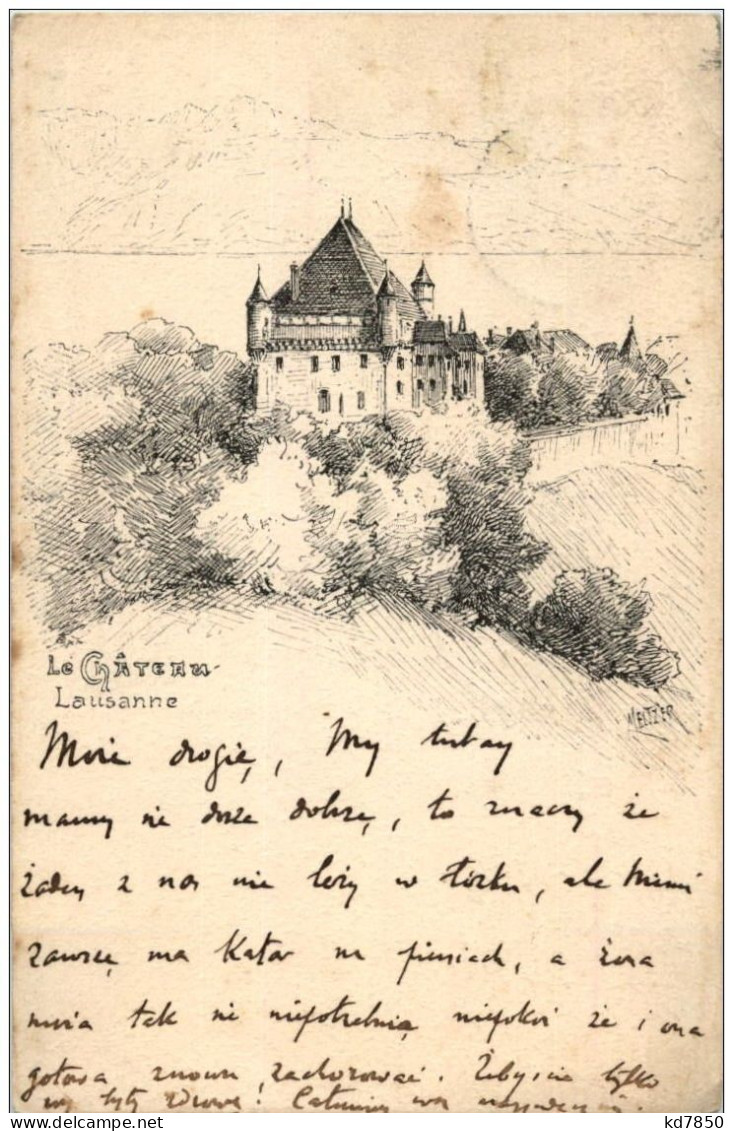 Le Château
Lausanne
MELTZER
Moje drogie, My tutay
mamy się dosze dobrze, to znaczy że
żaden z nas nie leży w łóżku, ale Mimi
zawsze ma Katar na piersiach, a żona
moia tak się niepotrzebnie niepokoi że i ona
gotowa znowu zachorować. Żebyście tylko
wy były zdrowe! Całujemy was
kd7850
delcampe.net